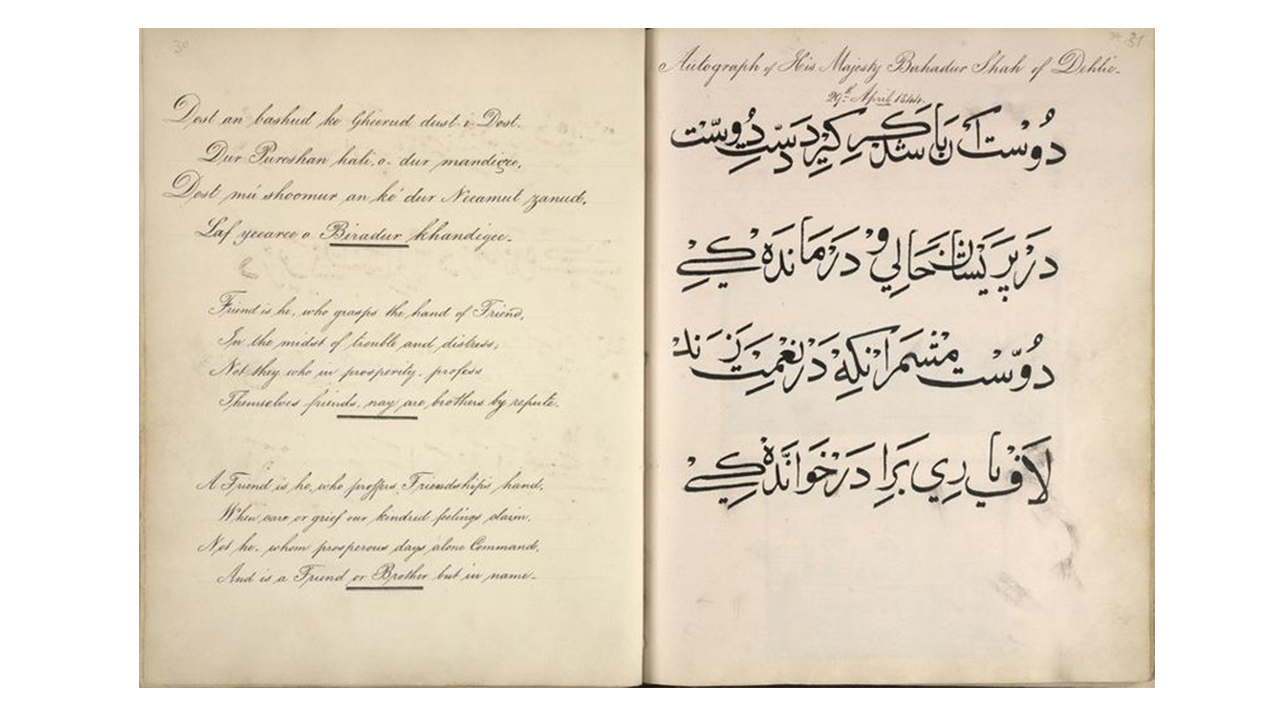 30
Dost an bashud ke Gheerud dust-i-Dost.
Dur Pureshan hali, o- dur mandigee,
Dost mú shoomur an ke' dur Neeamut zanud,
Laf yeearee o Biradur khandigee.
Friend is he, who grasps the hand of Friend,
In the midst of trouble and distress,
Not they who in prosperity profess
Themselves friends, nay are brothers by repute.
A Friend is he, who proffers Friendship's hand,
When care or grief our kindred feelings claim,
Not he- whom prosperous days alone Command,
And is a Friend or Brother but in name-
31
Autograph of His Majesty Bahadur Shah of Dehlie-
29th April 1844.
دوست آن باشد که گیرد دست دوست
در پریشان حالی و درماندگی
دوست مشمر آنکه در نعمت زند
لاف یاری برادر خواندگی